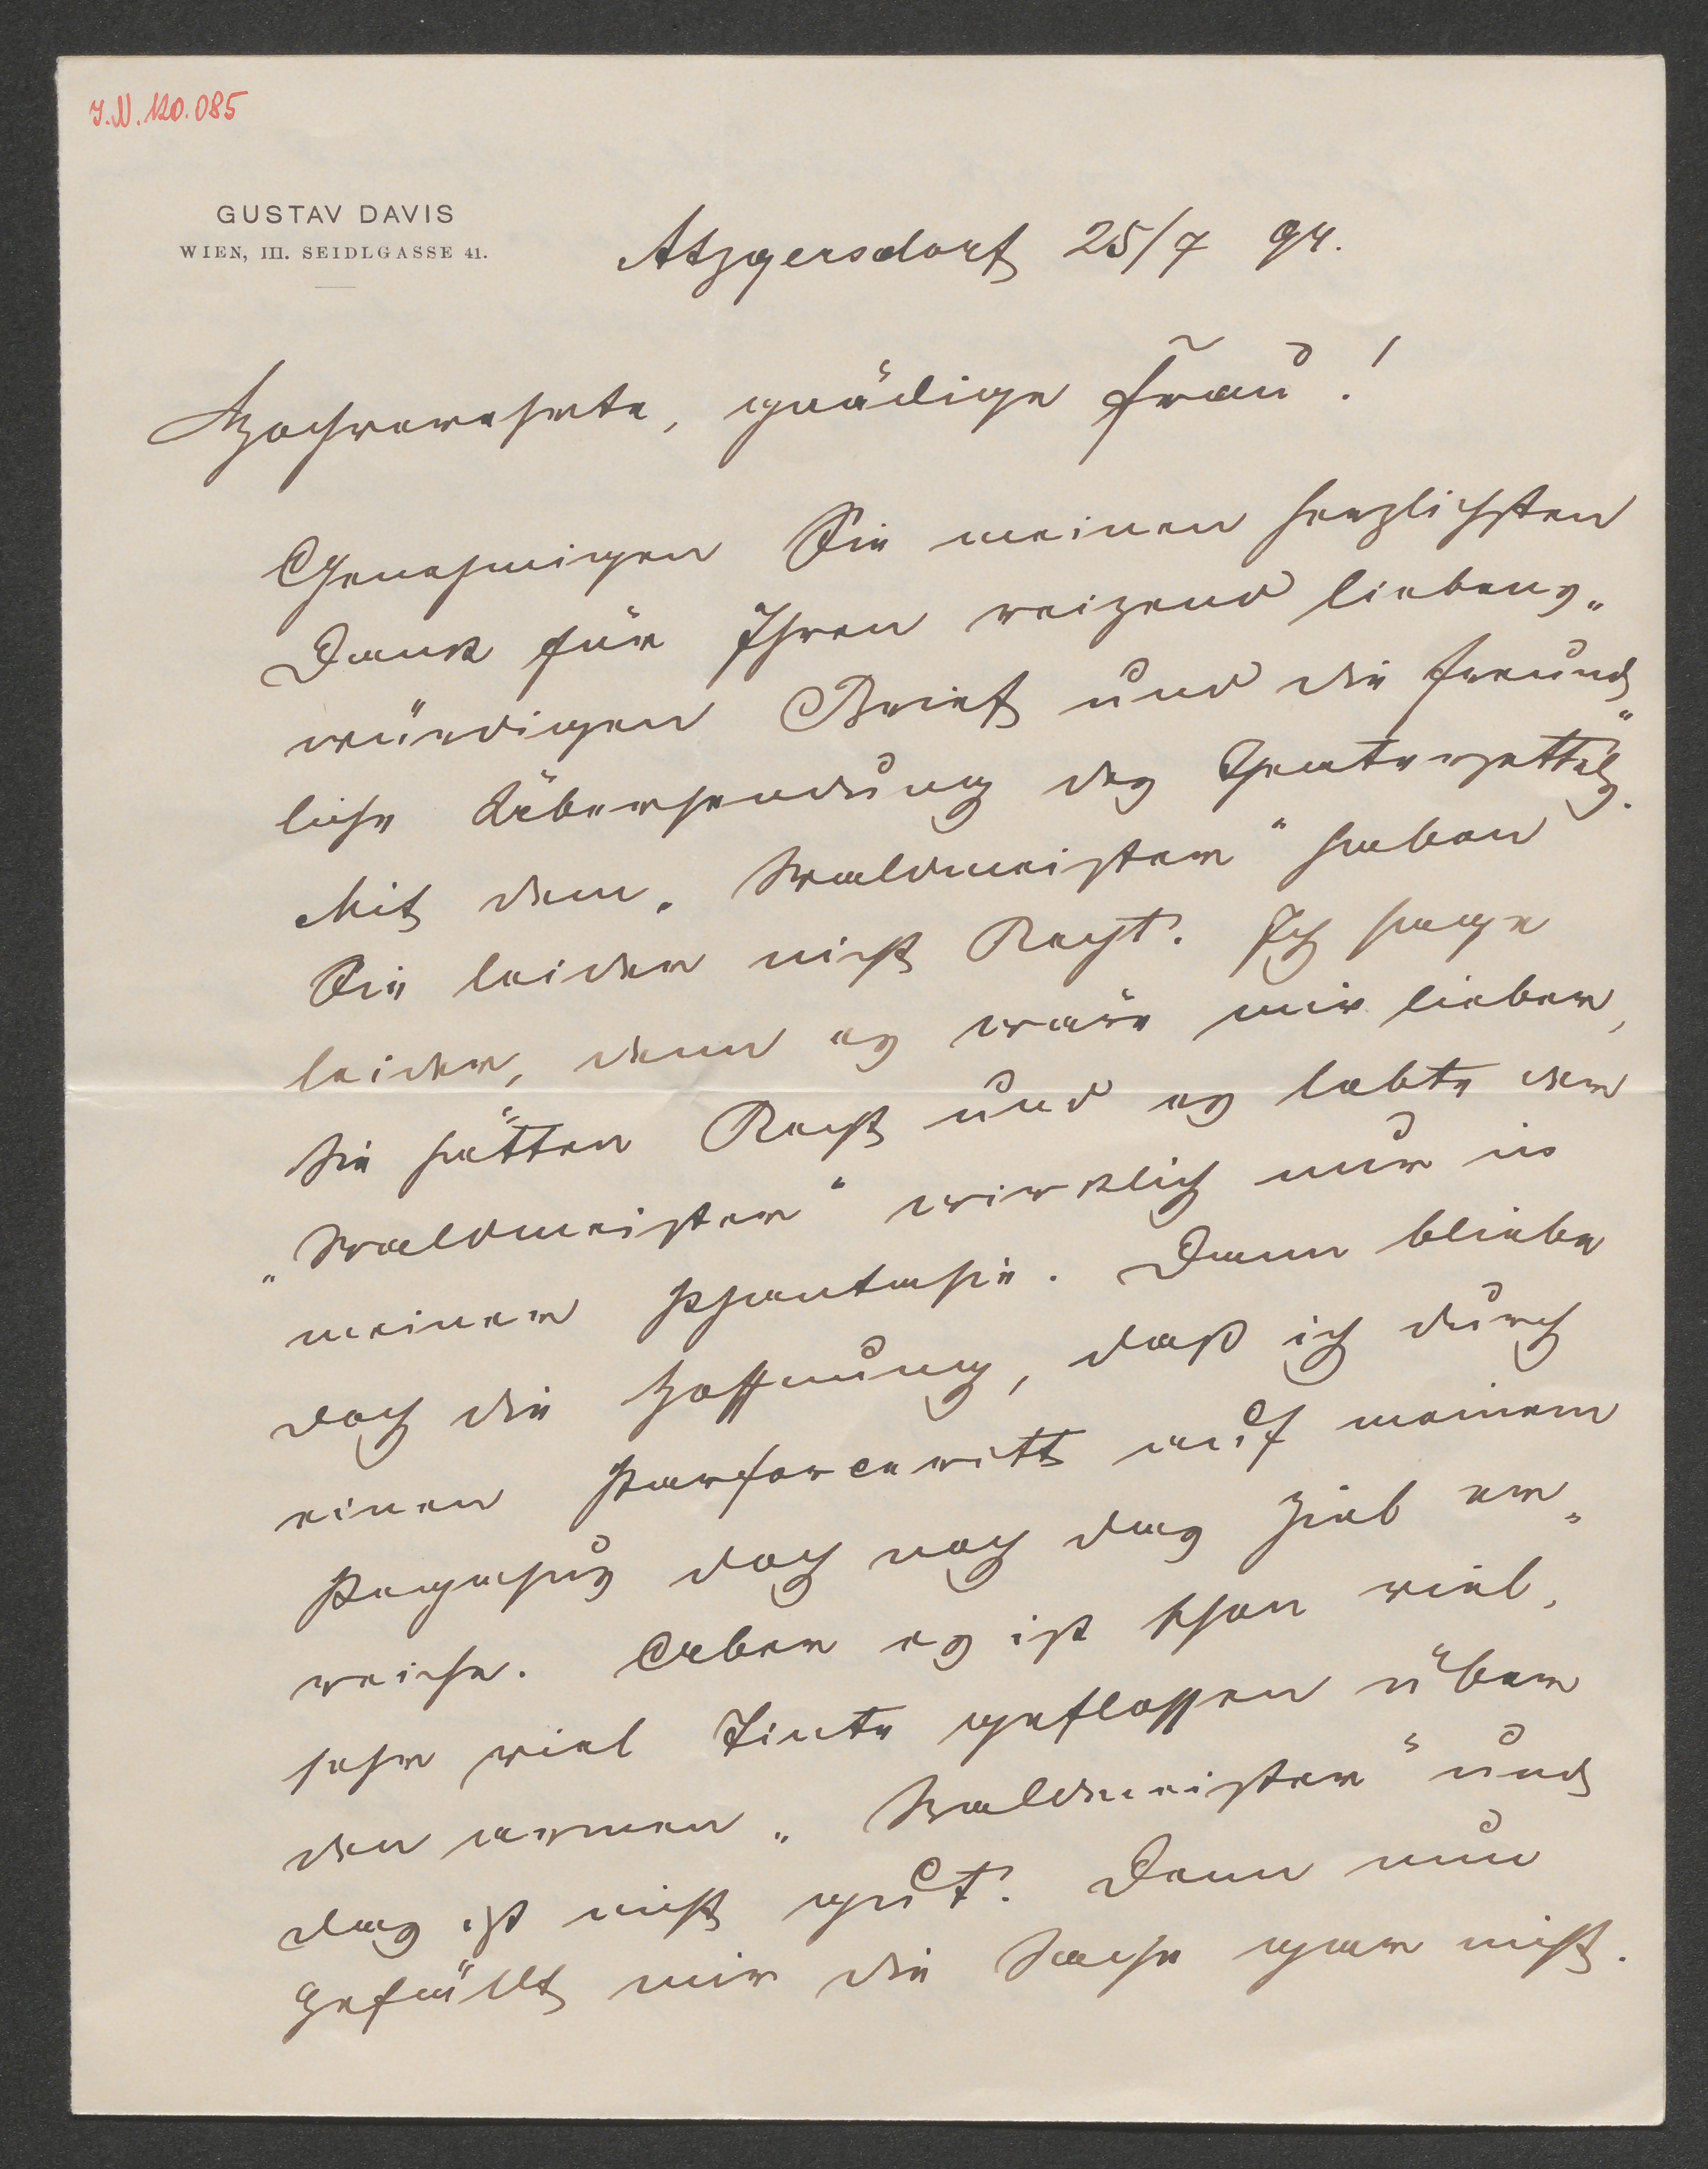 J.N. 120.085
GUSTAV DAVIS
WIEN, III. SEIDLGASSE 41.
Atzgersdorf 25/7 94.
Hochverehrte, gnädige Frau!
Genehmigen Sie meinen herzlichsten
Dank für Ihren reizend liebens„
würdigen Brief und die freund„
liche Übersendung des Theaterzettels.
Mit dem „Waldmeister“ haben
Sie leider nicht Recht. Ich sage
leider, denn es wäre mir lieber,
Sie hätten Recht und es lebte der
„Waldmeister“ wirklich nur in
meiner Phantasie. Dann bliebe
doch die Hoffnung, daß ich durch
einen Parforceritt auf meinem
Pegasus doch noch das Ziel er„
reiche. Aber es ist schon viel,
sehr viel Tinte geflossen über
den armen „Waldmeister“ und
das ist nicht gut. Denn nun
gefällt mir die Sache gar nicht.